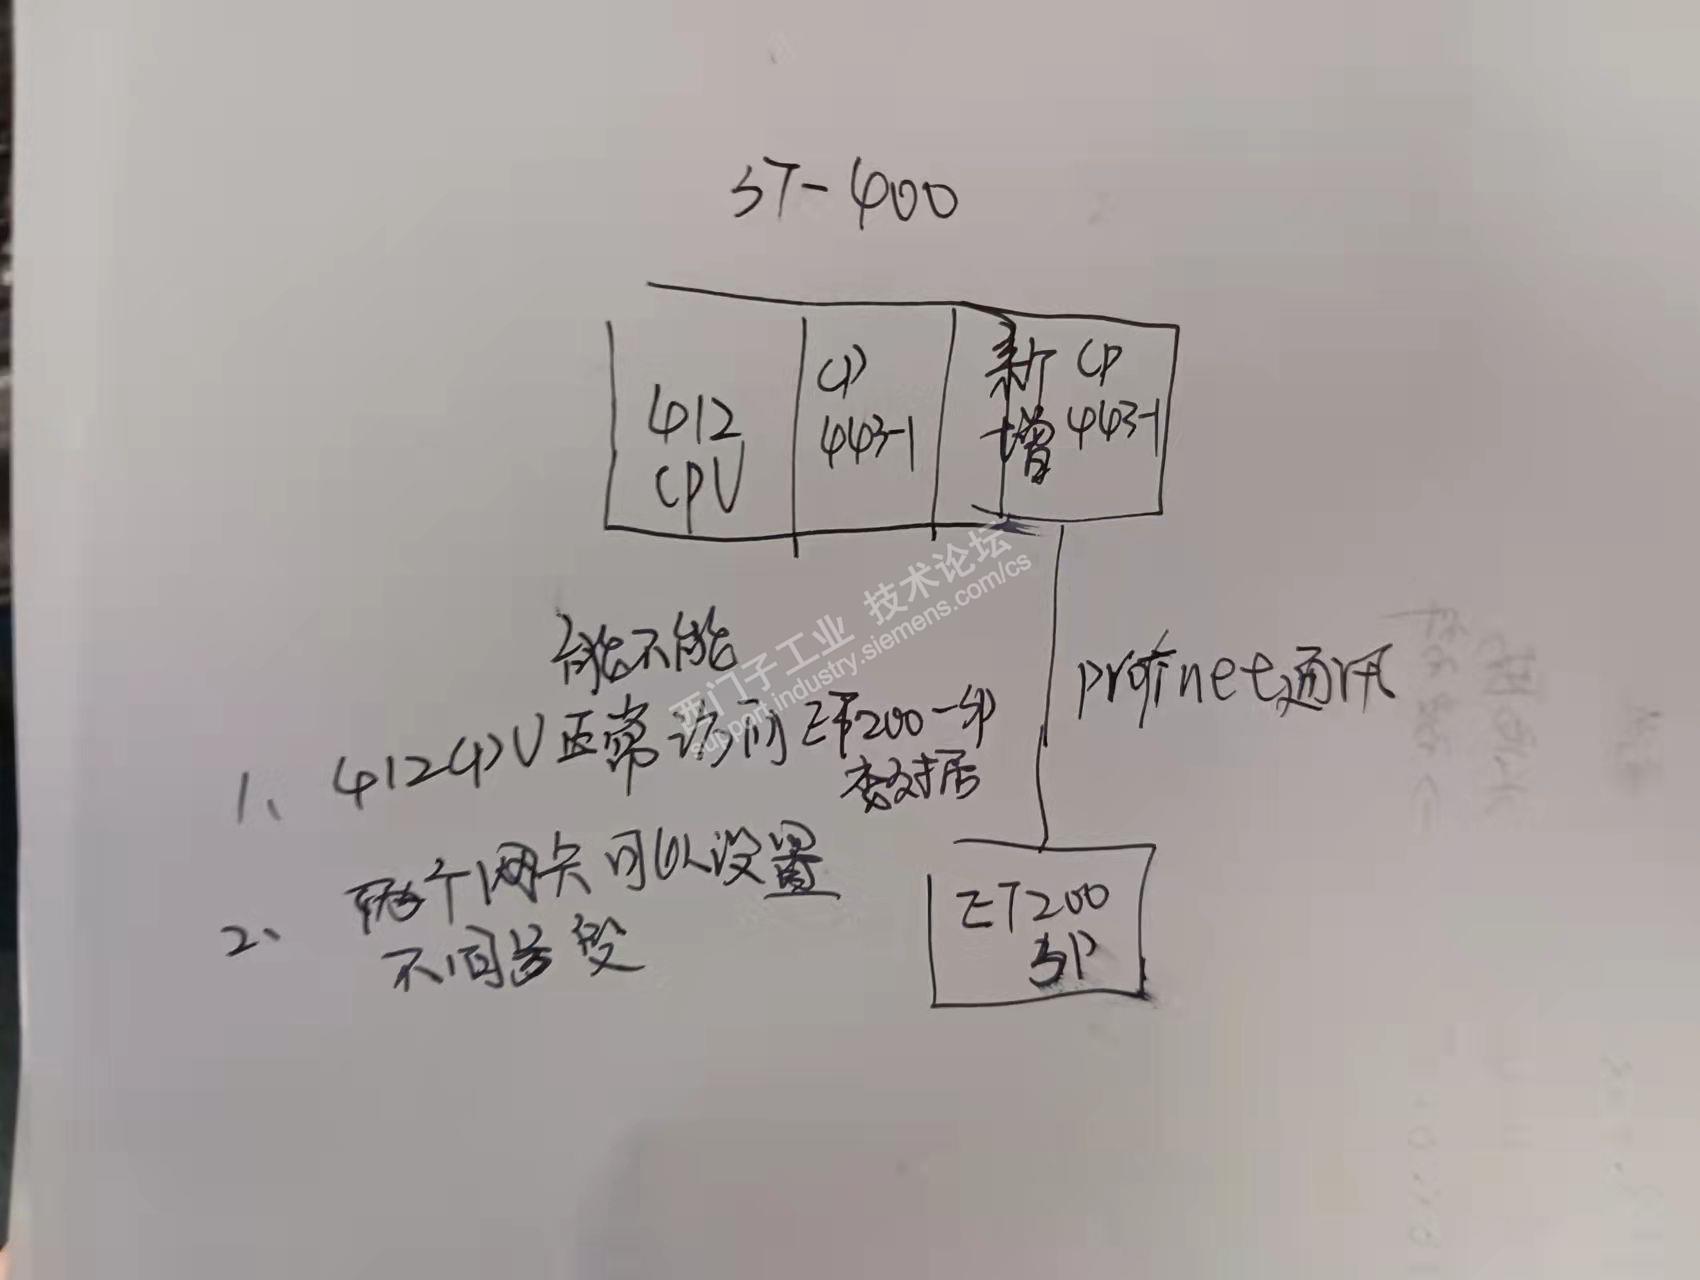 S7-400
412
CPU
CP
443-1
新增
CP
443-1
profinet通讯
能不能
1、412CPU正常访问ET200-SP
数据
2、两个网卡可以设置
不同
ET200
SP
西门子工业 技术论坛
support.industry.siemens.com/cs